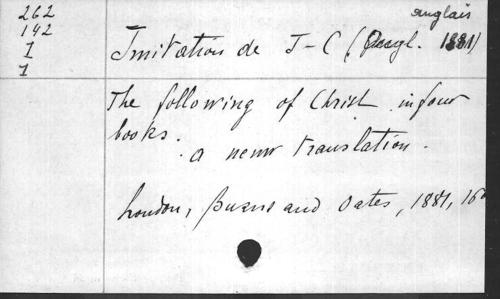 262
142
1
1
anglais
Imitation de J-C (angl. 1881)
The following of Christ in four
books.
a new translation.
London, Burns and Oates, 1881, 16o